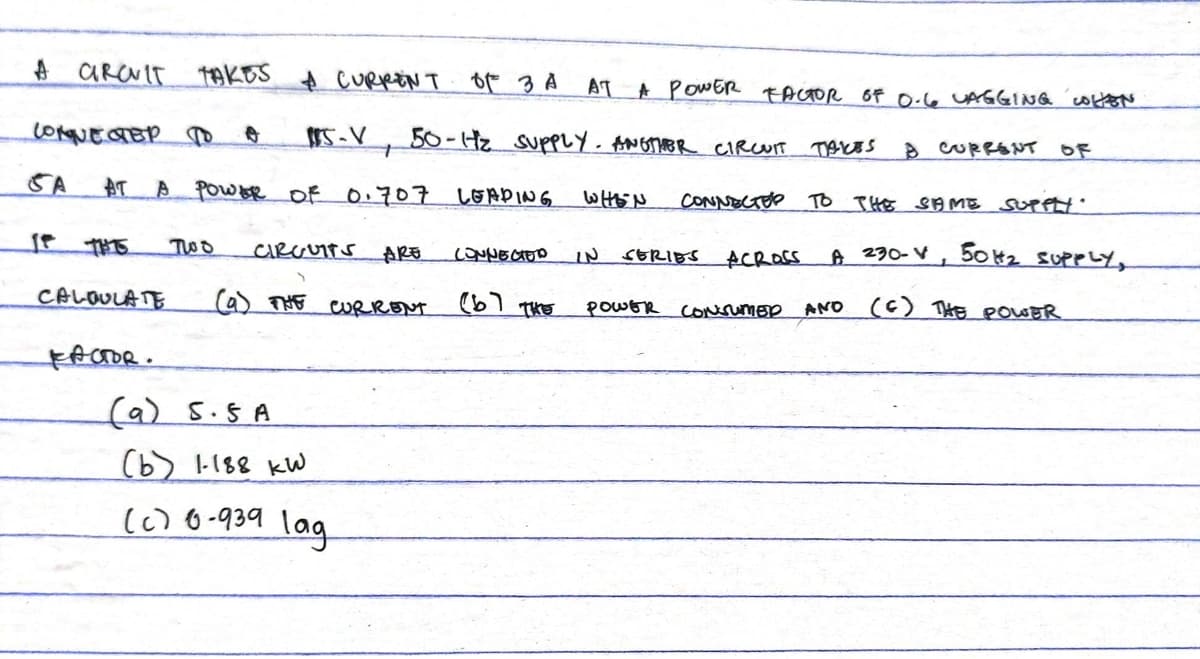 A CIRCUIT TAKES A CURRENT OF 3 A AT A POWER FACTOR OF 0.6 LAGGING WHEN
CONNECTED TO A 115-V, 50-Hz SUPPLY. ANOTHER CIRCUIT TAKES A CURRENT OF
5A AT A POWER OF 0.707 LEADING WHEN CONNECTED TO THE SAME SUPPLY.
IF THE TWO CIRCUITS ARE CONNECTED IN SERIES ACROSS A 230-V, 50Hz SUPPLY,
CALCULATE (a) THE CURRENT (b) THE POWER CONSUMED AND (c) THE POWER
FACTOR.
(a) 5.5 A
(b) 1.188 kW
(c) 0.939 lag